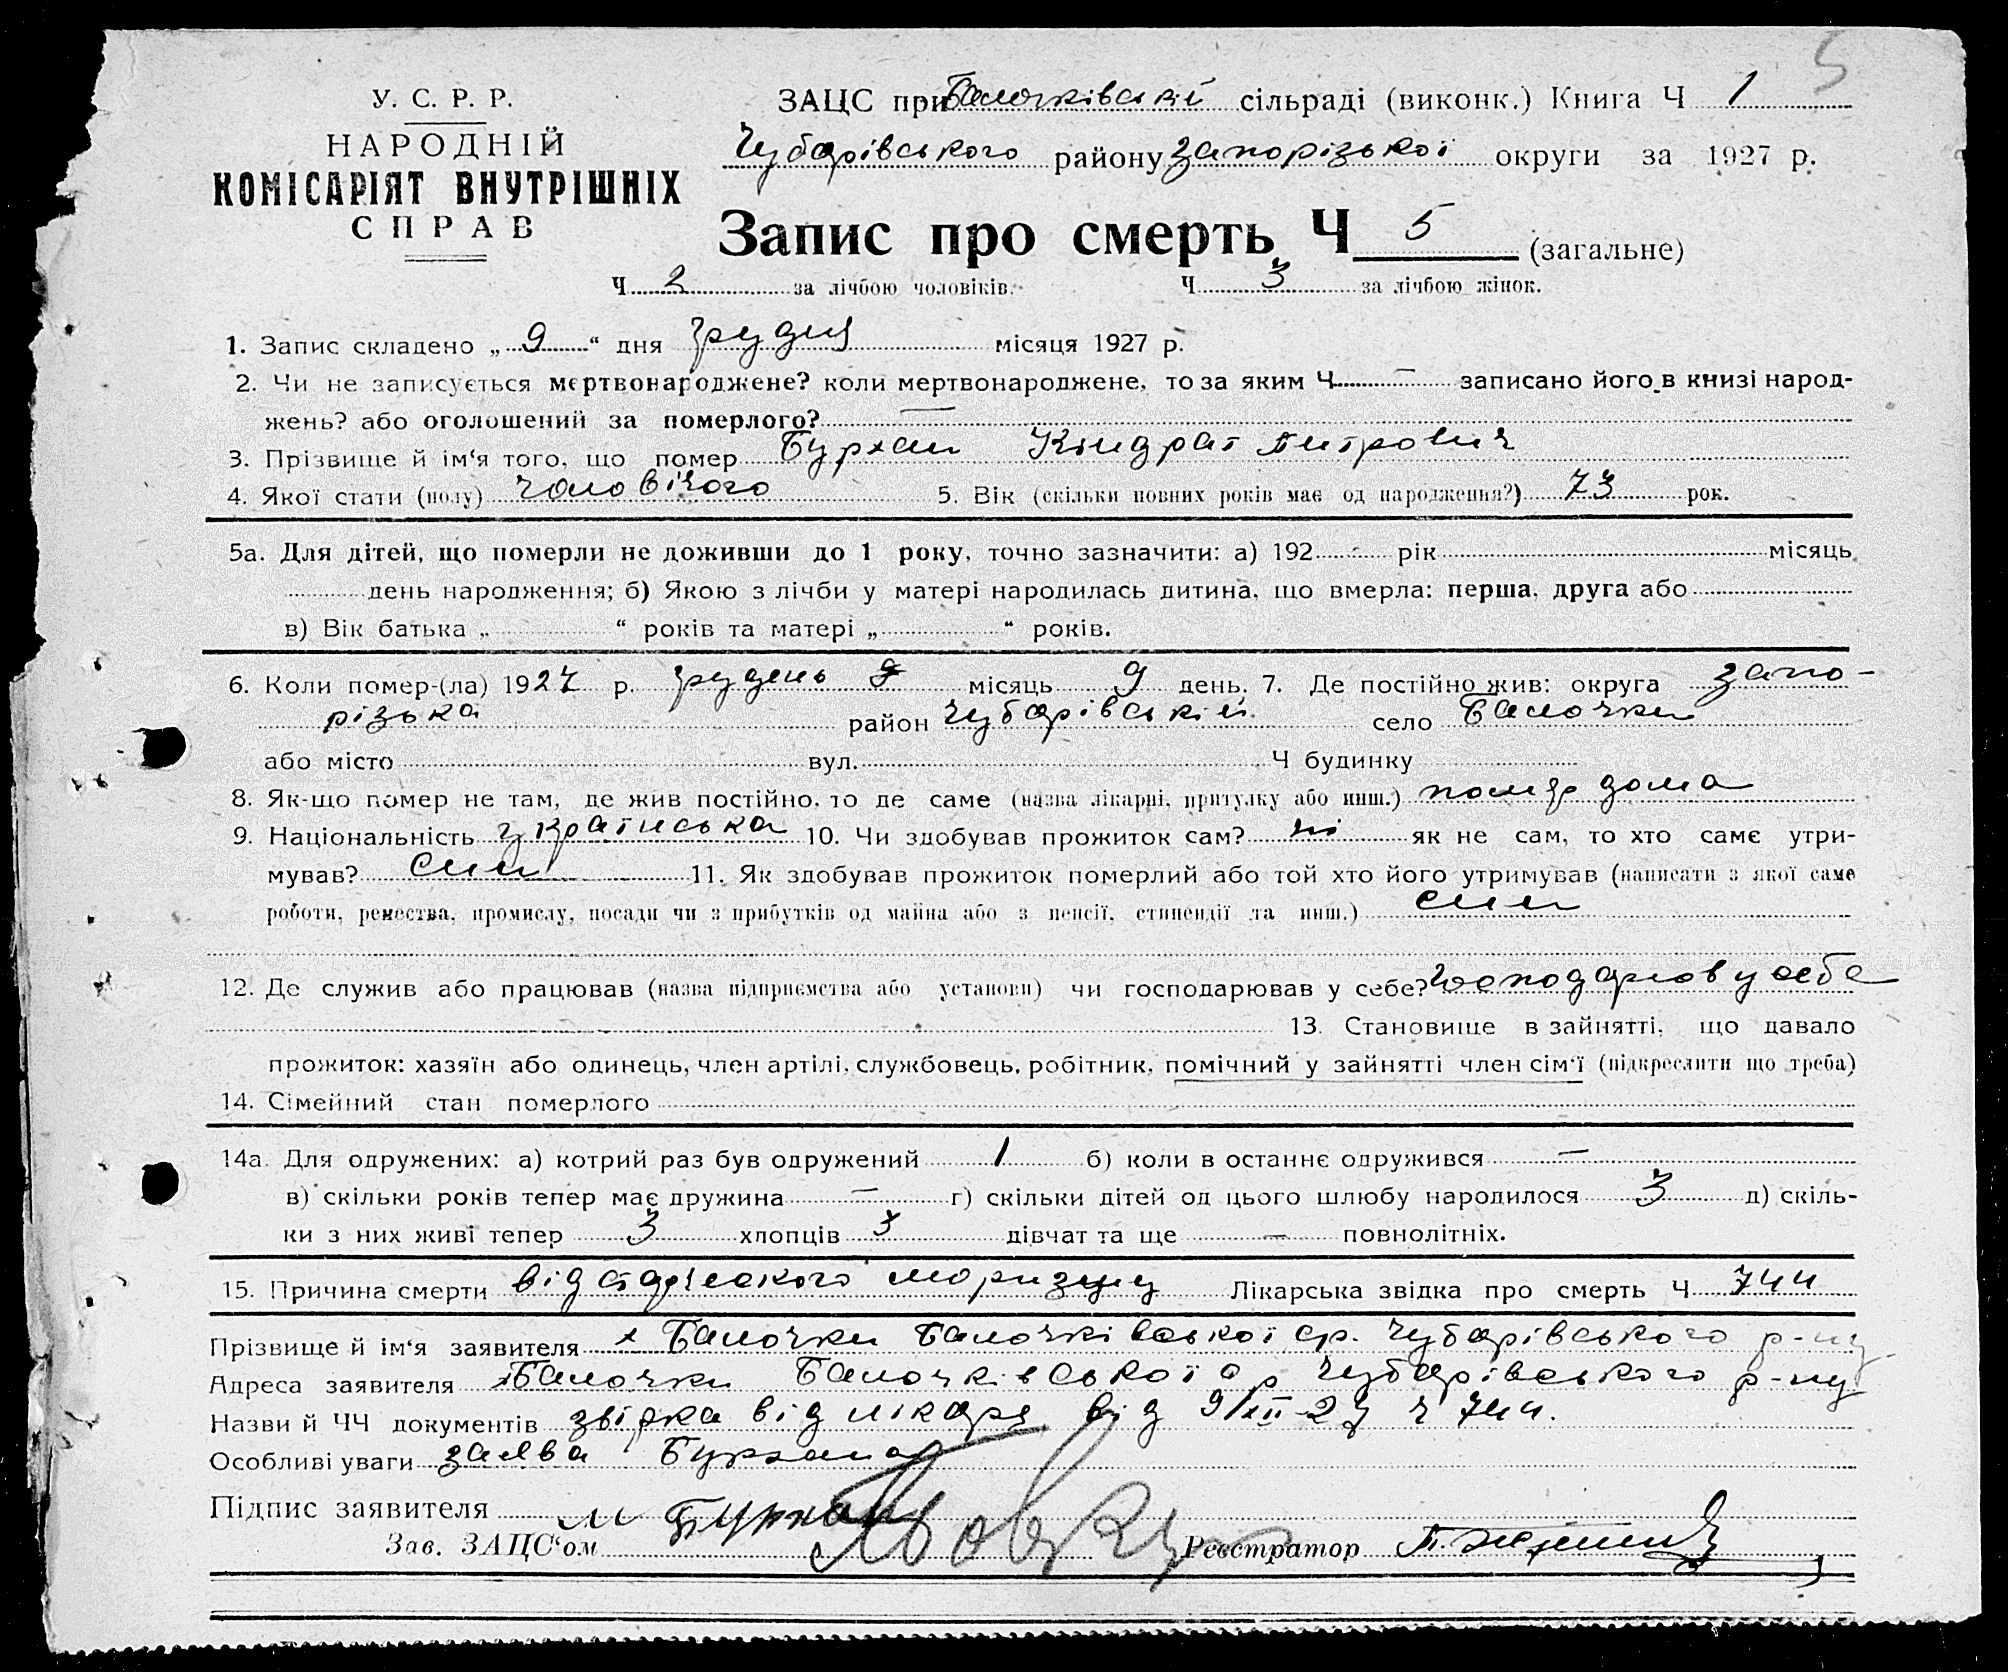 5
У. С. Р. Р.
НАРОДНІЙ
КОМІСАРІЯТ ВНУТРІШНІХ
СПРАВ
ЗАЦС при Балочківській сільраді (виконк.) Книга Ч 1
Чубарівського району Запорізької округи за 1927 р.
Запис про смерть Ч 5 (загальне)
Ч 2 за лічбою чоловіків. Ч 3 за лічбою жінок.
1. Запис складено „ 9 “ дня грудня місяця 1927 р.
2. Чи не записується мертвонароджене? коли мертвонароджене, то за яким Ч — записано його в книзі народ-
жень? або оголошений за померлого? —
3. Прізвище й ім‘я того, що помер Бурхан Кіндрат Питрович
4. Якої стати (полу) чоловічого 5. Вік (скільки повних років має од народження?) 73 рок.
5а. Для дітей, що померли не доживши до 1 року, точно зазначити: а) 192 рік місяць
день народження; б) Якою з лічби у матері народилась дитина, що вмерла: перша, друга або
в) Вік батька „ “ років та матері „ “ років.
6. Коли помер-(ла) 1927 р. грудень 9 місяць 9 день. 7. Де постійно жив: округа Запо-
різька район Чубарівський село Балочки
або місто вул. Ч будинку
8. Як-що помер не там, де жив постійно, то де саме (назва лікарні, притулку або инш.) помер дома
9. Національність українська 10. Чи здобував прожиток сам? ні як не сам, то хто саме утри-
мував? син 11. Як здобував прожиток померлий або той хто його утримував (написати з якої саме
роботи, ремества, промислу, посади чи з прибутків од майна або з пенсії, стипендії та инш.) син
12. Де служив або працював (назва підприємства або установи) чи господарював у себе? Господарював у себе
13. Становище в зайнятті, що давало
прожиток: хазяїн або одинець, член артілі, службовець, робітник, помічний у зайнятті член сім‘ї (підкреслити що треба)
14. Сімейний стан померлого
14а. Для одружених: а) котрий раз був одружений 1 б) коли в останнє одружився —
в) скільки років тепер має дружина — г) скільки дітей од цього шлюбу народилося 3 д) скіль-
ки з них живі тепер 3 хлопців 3 дівчат та ще — повнолітніх.
15. Причина смерти від старческого Лікарська звідка про смерть Ч 744
Прізвище й ім‘я заявителя х Балочки Балочківської ср. Чубарівського р-ну
Адреса заявителя х Балочки Балочківської с р Чубарівського р-ну
Назви й ЧЧ документів звідка від лікаря від 9/XII-27 ч 744.
Особливі уваги заява Бурхана
Підпис заявителя Бурхан
Зав. ЗАЦС‘ом Реєстратор